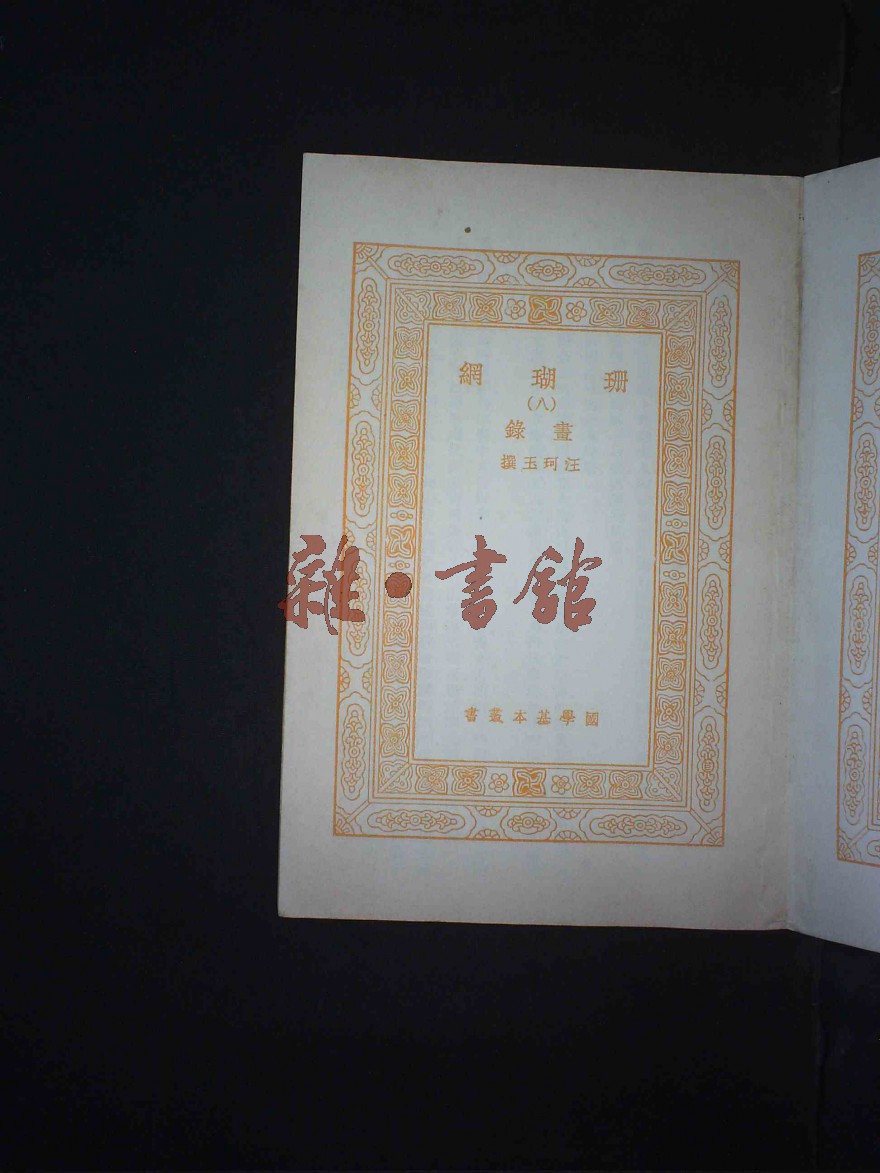 珊瑚網
(八)
畫錄
汪珂玉撰
雜·書館
國學基本叢書